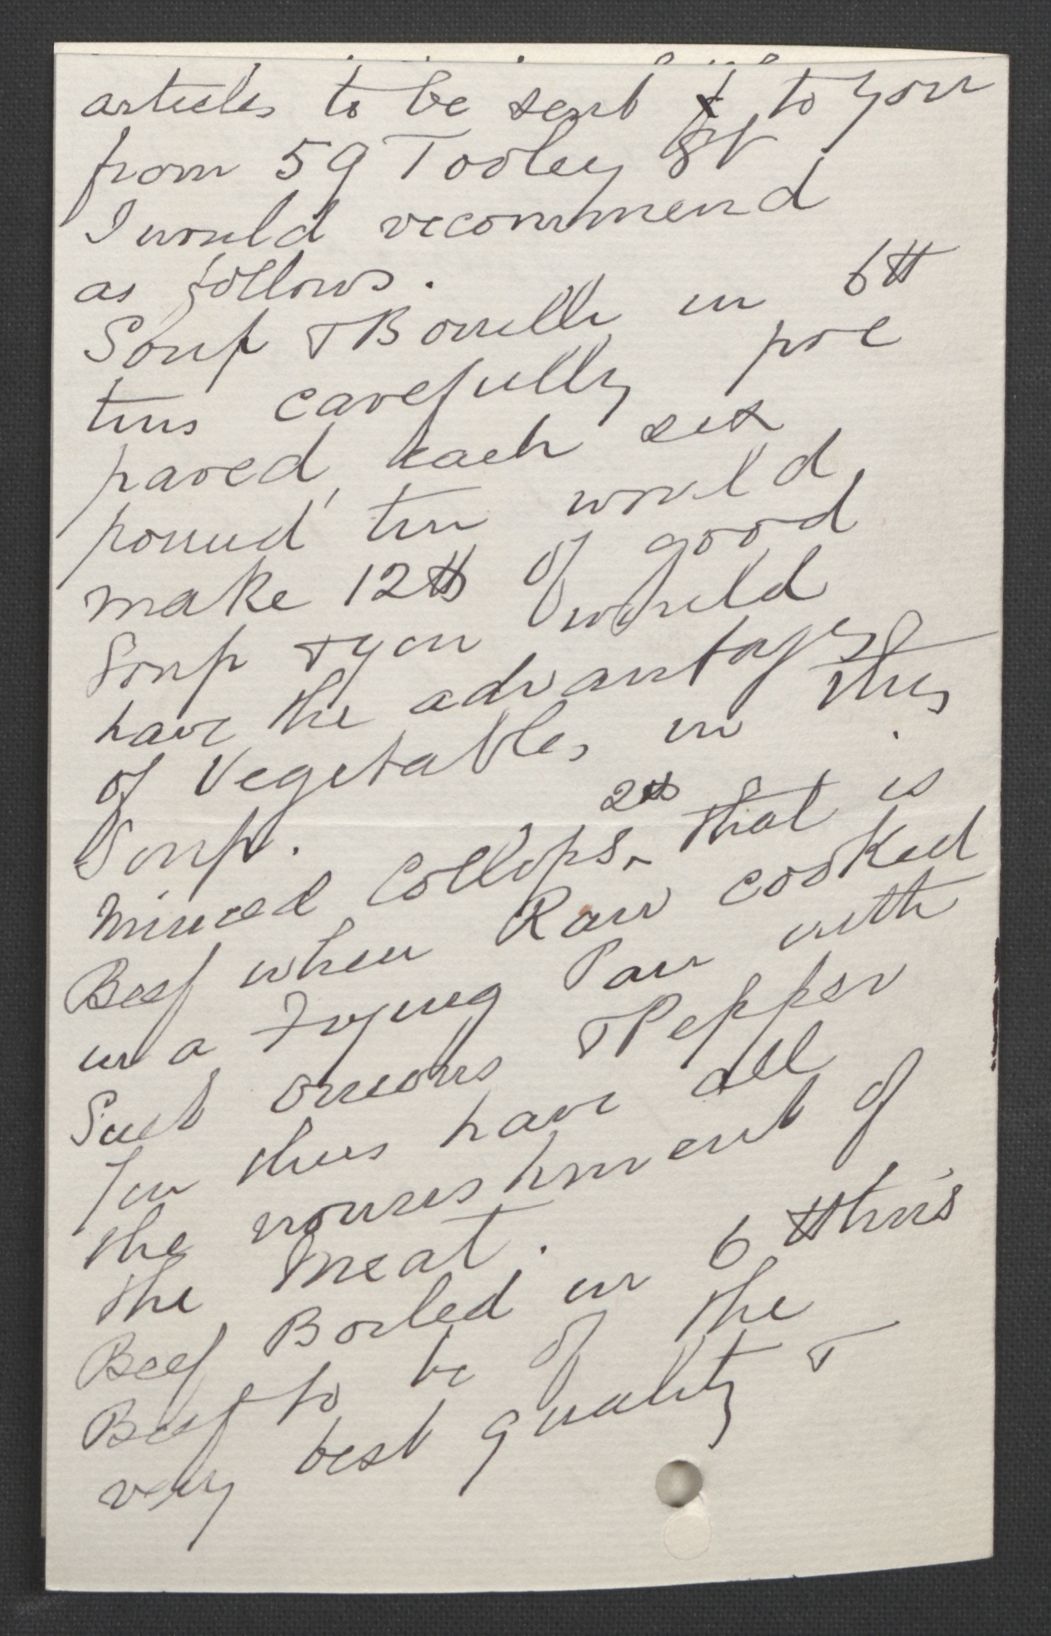 articles to be sent to you
from 59 Tooley St
I would recommend
as follows.
Soup & Bouilli in 6 lb
tins carefully pre
pared, each six
pound tin would
make 12 lb of good
Soup & you would
have the advantage
of Vegetables in this
Soup.
Minced Collops 2 lb that is
Beef when Raw cooked
in a Frying Pan with
Suet onions & Pepper
You thus have all
the nourishment of
the Meat.
Beef Boiled in 6 lb tins
Beef to be of the
very best quality &